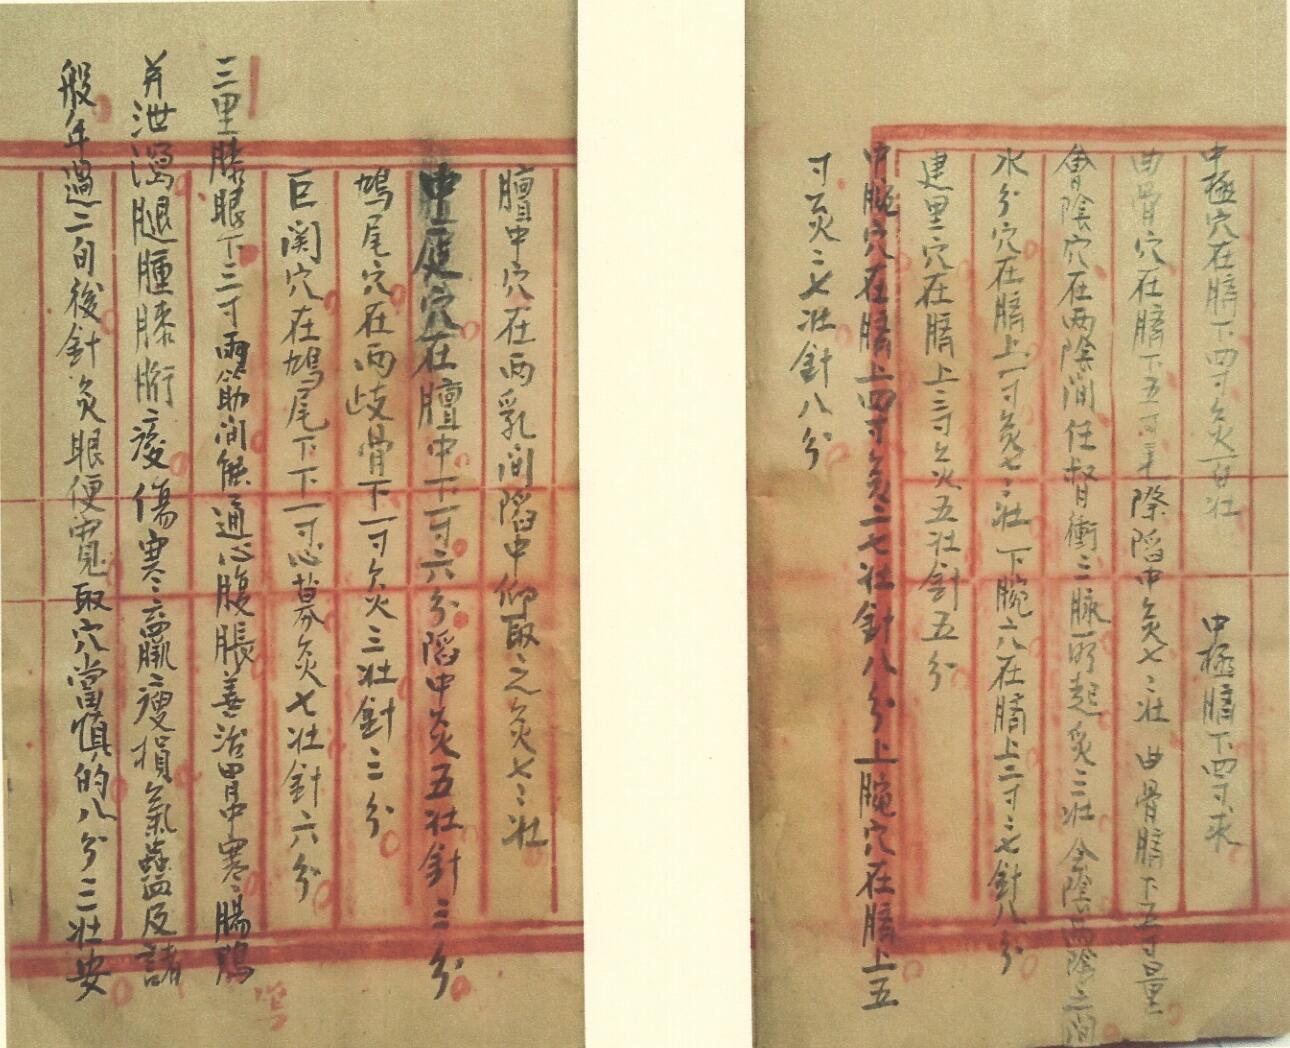 中極穴在臍下四寸灸百壯 中極臍下四寸求
曲骨穴在臍下五寸毛際陷中灸七壯 曲骨臍下五寸量
會陰穴在兩陰間任督衝三脉所起灸三壯 会陰兩陰之間
水分穴在臍上一寸灸七壯 下腕穴在臍上二寸七針八分
建里穴在臍上三寸灸五壯針五分
中腕穴在臍上四寸灸二七壯針八分上腕穴在臍上五
寸灸二七壯針八分
膻中穴在兩乳间陷中仰取之灸七壯
中庭穴在膻中下一寸六分陷中灸五壯針三分
鳩尾穴在兩歧骨下一寸灸三壯針三分
巨闕穴在鳩尾下下一寸心募灸七壯針六分
三里膝眼下三寸兩筋间能通心腹脹善治胃中寒腸鳴
并泄瀉腿腫膝胻痠傷寒羸瘦損氣蠱及諸
般年過三旬後針灸眼便寬取穴當慎的八分三壯安
鳴